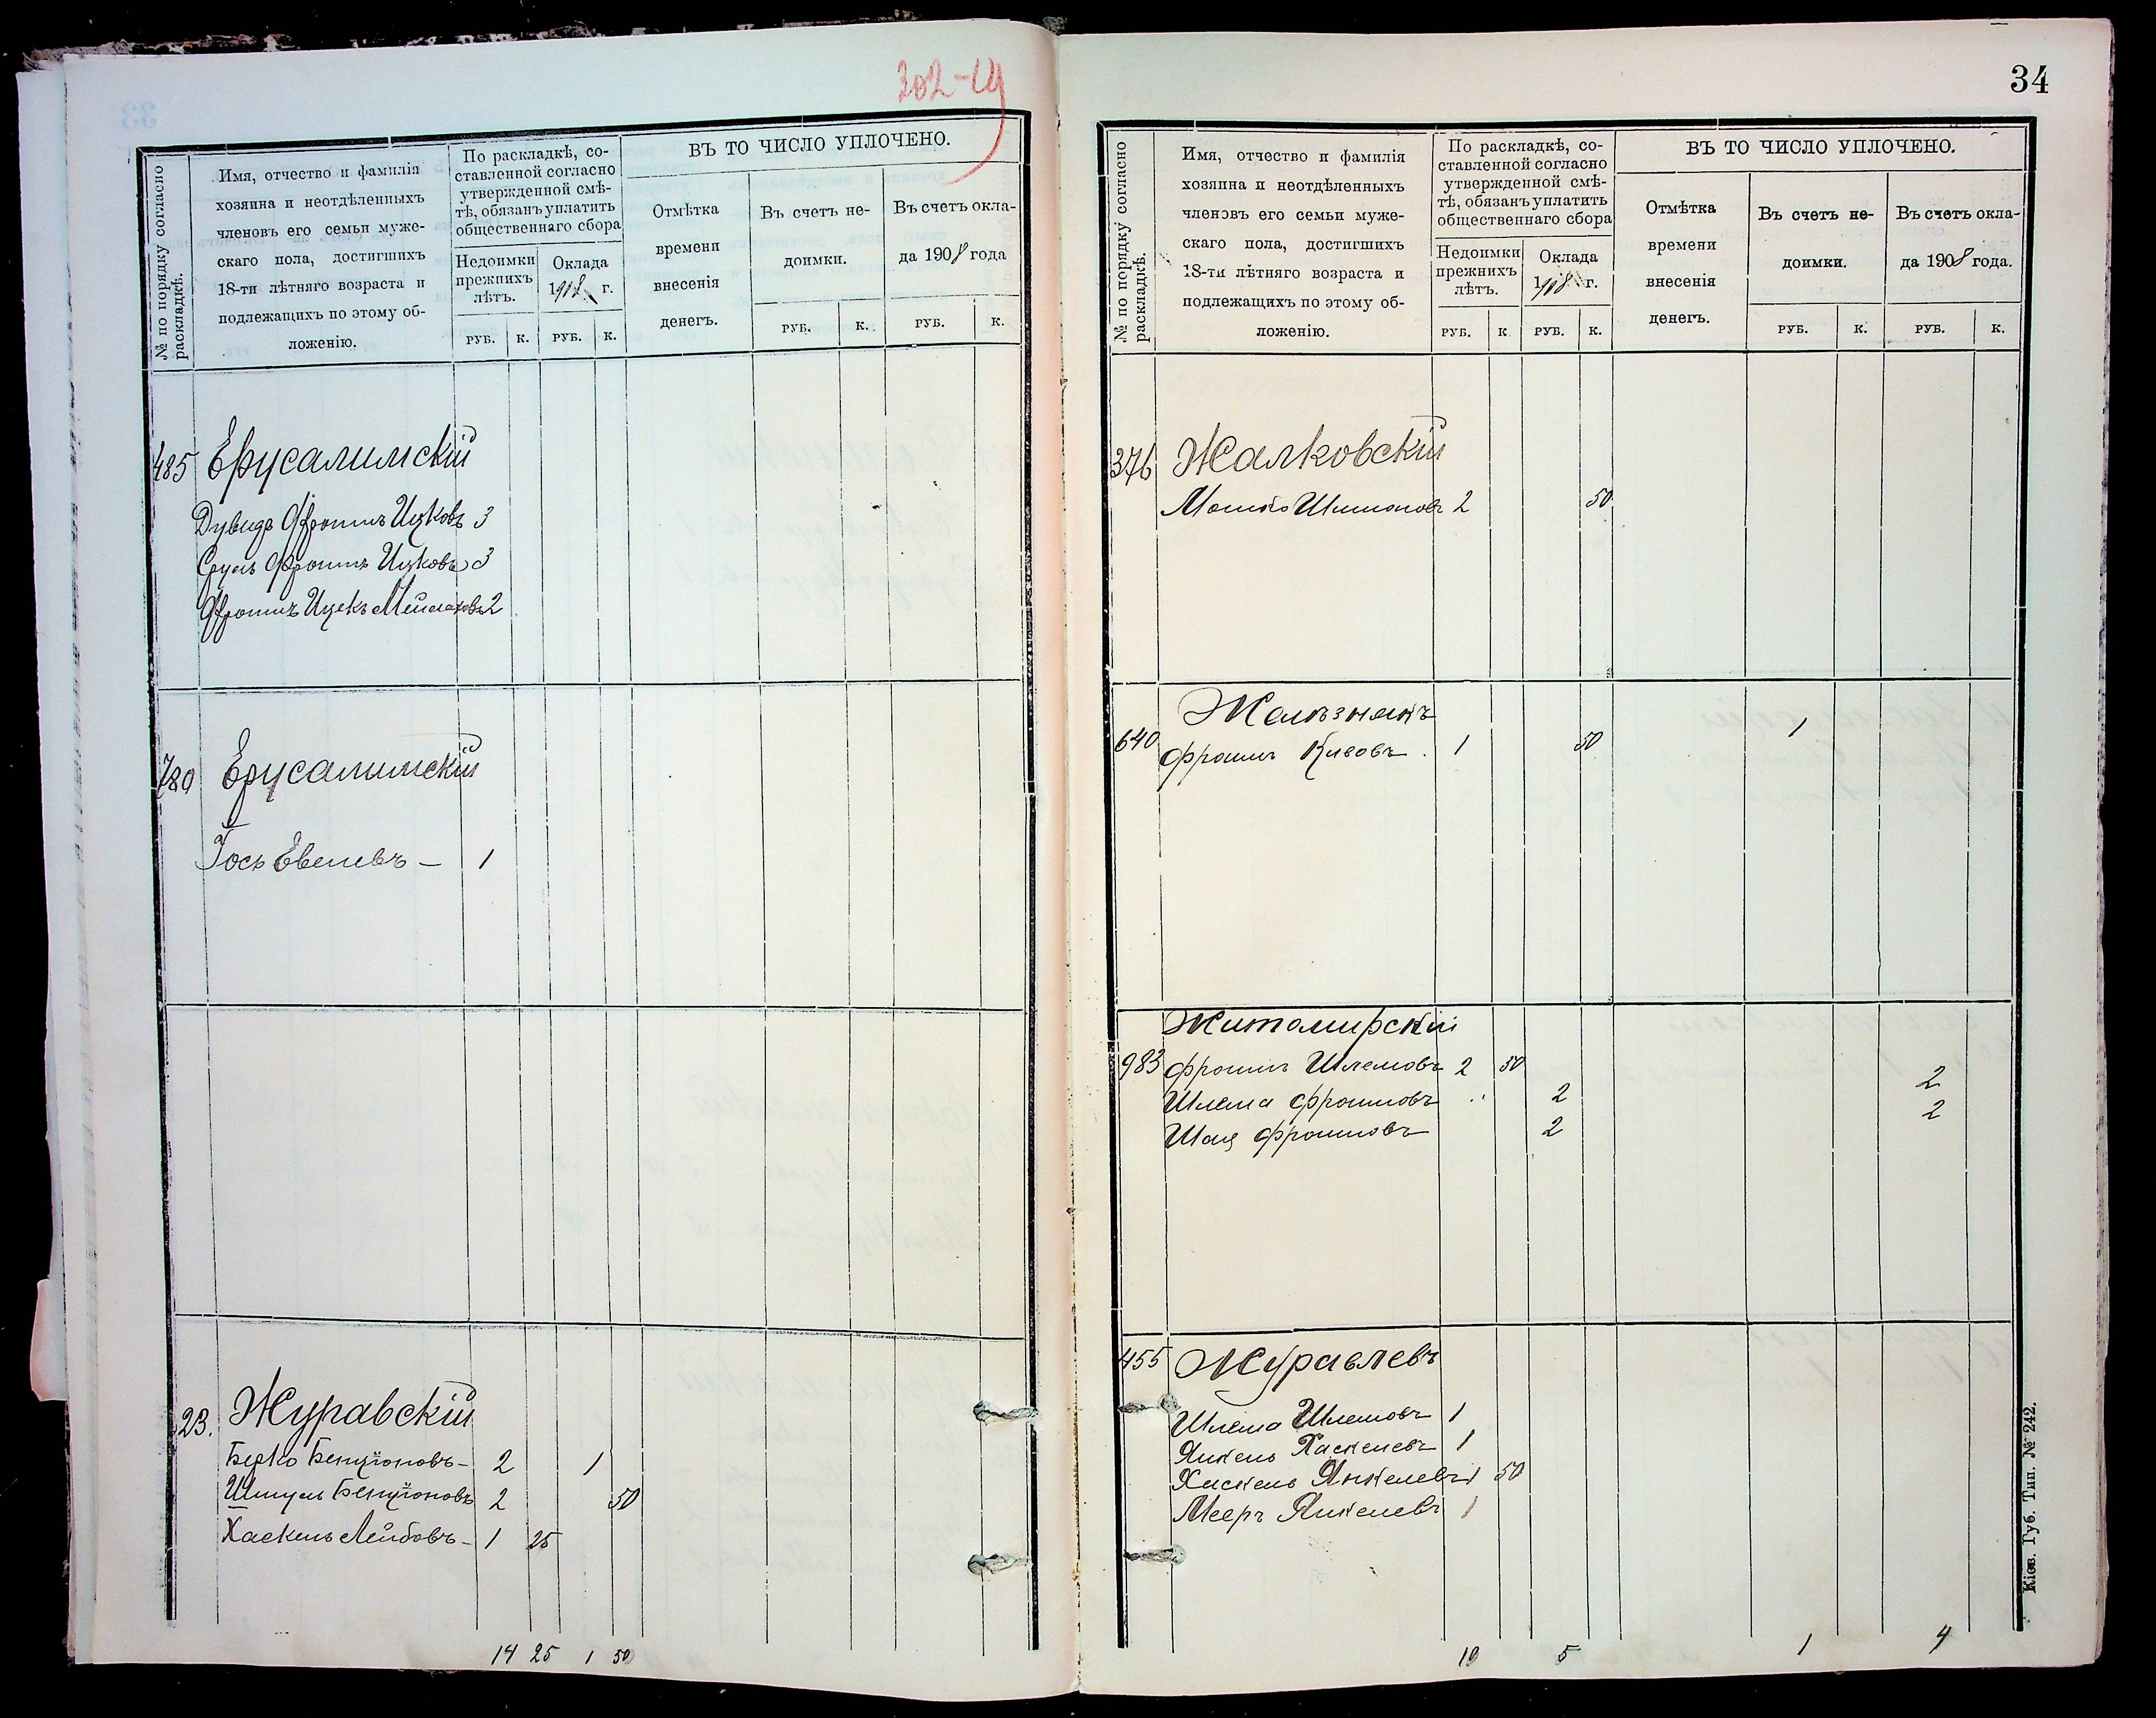 302-19
№ по порядку согласно раскладкѣ.
Имя, отчество и фамилія
хозяина и неотдѣленныхъ
членовъ его семьи муже-
скаго пола, достигшихъ
18-ти лѣтняго возраста и
подлежащихъ по этому об-
ложенію.
По раскладкѣ, со-
ставленной согласно
утвержденной смѣ-
тѣ, обязанъ уплатить
общественнаго сбора
Недоимки прежнихъ лѣтъ.
Оклада 1908 г.
РУБ. К. РУБ. К.
ВЪ ТО ЧИСЛО УПЛОЧЕНО.
Отмѣтка
времени
внесенія
денегъ.
Въ счетъ не-
доимки.
Въ счетъ окла-
да 1908 года
РУБ. К. РУБ. К.
485 Ерусалимскій
Дувидъ Фроимъ Ицковъ 3
Сруль Фроимъ Ицковъ 3
Фроимъ Ицекъ Мейлаховъ 2
780 Ерусалимскій
Іось Евелевъ — 1
23. Журавскій
Берко Бенціоновъ - 2 1
Шмуль Бенціоновъ 2 50
Хаскель Лейбовъ - 1 25
14 25 1 50
34
№ по порядку согласно раскладкѣ.
Имя, отчество и фамилія
хозяина и неотдѣленныхъ
членовъ его семьи муже-
скаго пола, достигшихъ
18-ти лѣтняго возраста и
подлежащихъ по этому об-
ложенію.
По раскладкѣ, со-
ставленной согласно
утвержденной смѣ-
тѣ, обязанъ уплатить
общественнаго сбора
Недоимки прежнихъ лѣтъ.
Оклада 1908 г.
РУБ. К РУБ. К.
ВЪ ТО ЧИСЛО УПЛОЧЕНО.
Отмѣтка
времени
внесенія
денегъ.
Въ счетъ не-
доимки.
Въ счетъ окла-
да 1908 года.
РУБ. К. РУБ. К.
376 Жалковскій
Мошко Шимоновъ 2 50
Желѣзнякъ
640 Фроимъ Кивовъ. 1 50 1
Житомирскій
983 Фроимъ Шлемовъ 2 50
Шлема Фроимовъ 2 2
Шая Фроимовъ 2 2
455 Журавлевъ
Шлема Шлемовъ 1
Янкель Хаскелевъ 1
Хаскель Янкелевъ 1 50
Мееръ Янкелевъ 1
10 5 1 4
Кіев. Губ. Тип. № 242.